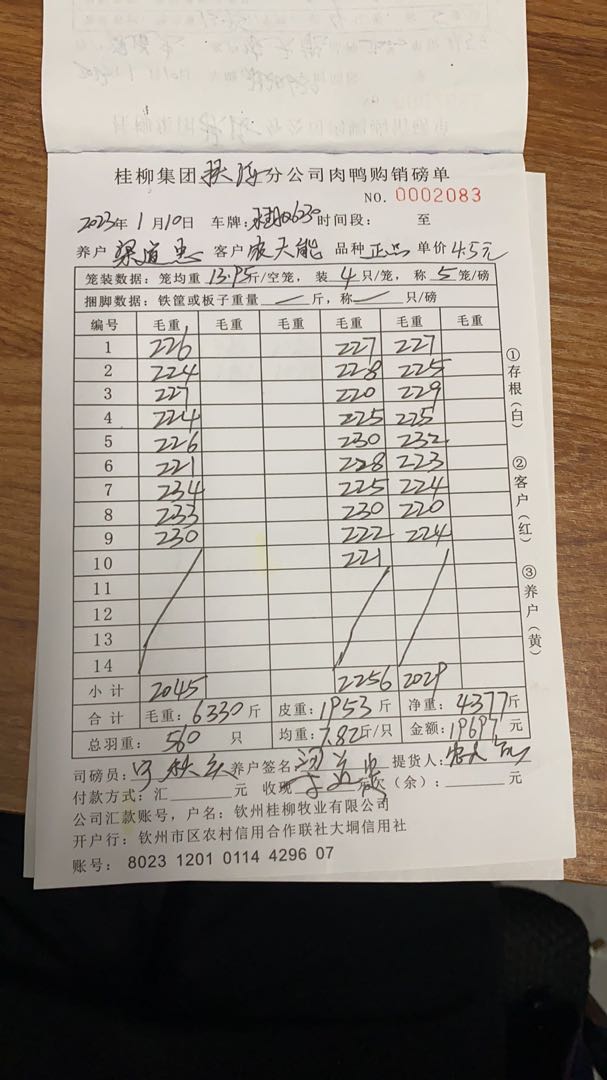 桂柳集团 分公司肉鸭购销磅单
NO. 0002083
2023年1月10日 车牌: 0230 时间段: 至
养户 渠道 客户 农天能 品种 正品 单价 4.5元
笼装数据: 笼均重 13.95斤/空笼, 装 4 只/笼, 称 5 笼/磅
捆脚数据: 铁筐或板子重量 — 斤, 称 — 只/磅
编号 毛重 毛重 毛重 毛重 毛重 毛重
1 226 227 227
2 224 228 225
3 227 220 229
4 224 225 225
5 226 230 232
6 221 228 223
7 234 225 224
8 233 230 220
9 230 222 224
10 221
11
12
13
14
小计 2045 2256 2029
合计 毛重: 6330 斤 皮重: 1953 斤 净重: 4377 斤
总羽重: 560 只 均重: 7.82斤/只 金额: 19697 元
司磅员: 养户签名: 提货人:
付款方式: 汇 元 收现 (余): 元
公司汇款账号, 户名: 钦州桂柳牧业有限公司
开户行: 钦州市区农村信用合作联社大垌信用社
账号: 8023 1201 0114 4296 07
①存根(白)
②客户(红)
③养户(黄)